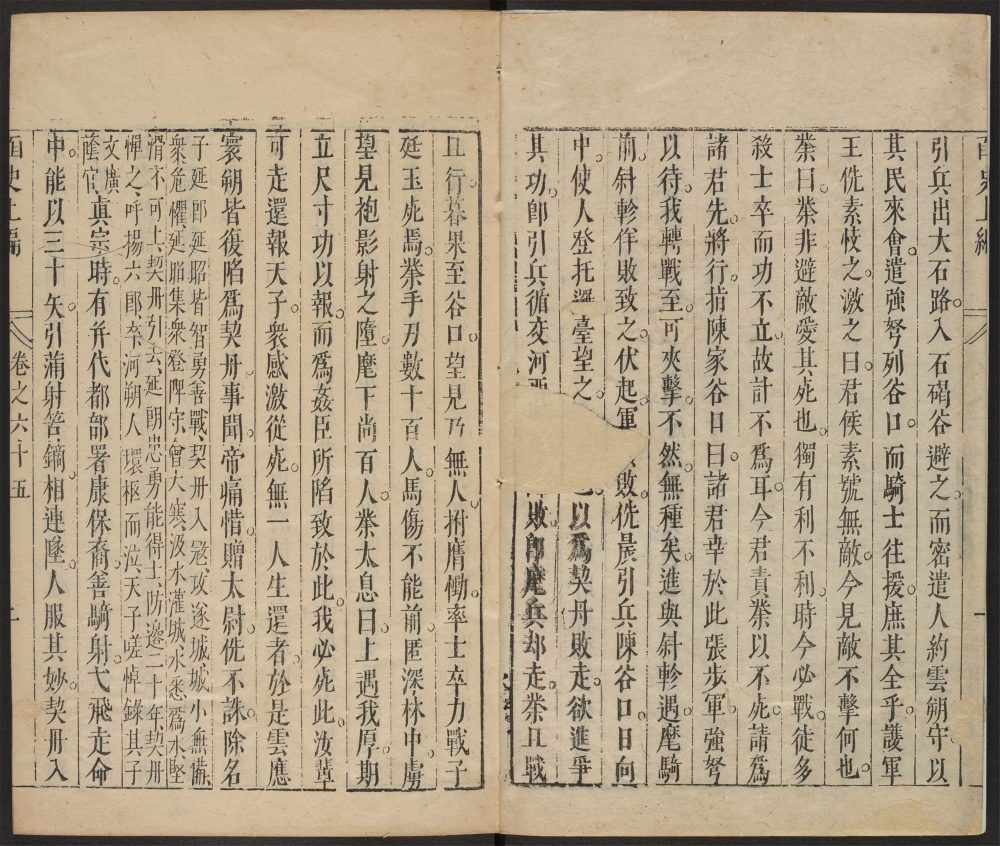 引兵出大石路入石碣谷避之而密遣人約雲朔守以
其民來會遣強弩列谷口而騎士往援庶其全乎護軍
王侁素忮之激之曰君侯素號無敵今見敵不擊何也
業曰業非避敵愛其死也獨有利不利時今必戰徒多
殺士卒而功不立故計不爲耳今君責業以不死請爲
諸君先將行指陳家谷日曰諸君幸於此張步軍強弩
以待我轉戰至可夾擊不然無種矣進與斜軫遇麾騎
前斜軫佯敗致之伏起軍敗侁晨引兵陳谷口日向
中使人登托邏臺望之以爲契丹敗走欲進爭
其功卽引兵循交河西敗卽麾兵却走業且戰
且行暮果至谷口望見乃無人拊膺慟率士卒力戰子
廷玉死焉業手刃數十百人馬傷不能前匿深林中虜
望見袍影射之墮麾下尚百人業太息曰上遇我厚期
立尺寸功以報而爲姦臣所陷致於此我必死此汝輩
可走還報天子衆感激從死無一人生還者於是雲應
寰朔皆復陷爲契丹事聞帝痛惜贈太尉侁不誅除名
子延郎延昭皆智勇善戰契丹入冦攻遂城城小無備
衆危懼延昭集衆登陴守會大寒汲水灌城水悉爲冰堅
滑不可上契丹引去延朗忠勇能得士防邊二十年契丹
憚之呼揚六郎卒河朔人環柩而泣天子嗟悼錄其子
文廣
蔭官眞宗時有幷代都部署康保裔善騎射弋飛走命
中能以三十矢引蒲射筈鏑相連墜人服其妙契丹入
卷之六十五